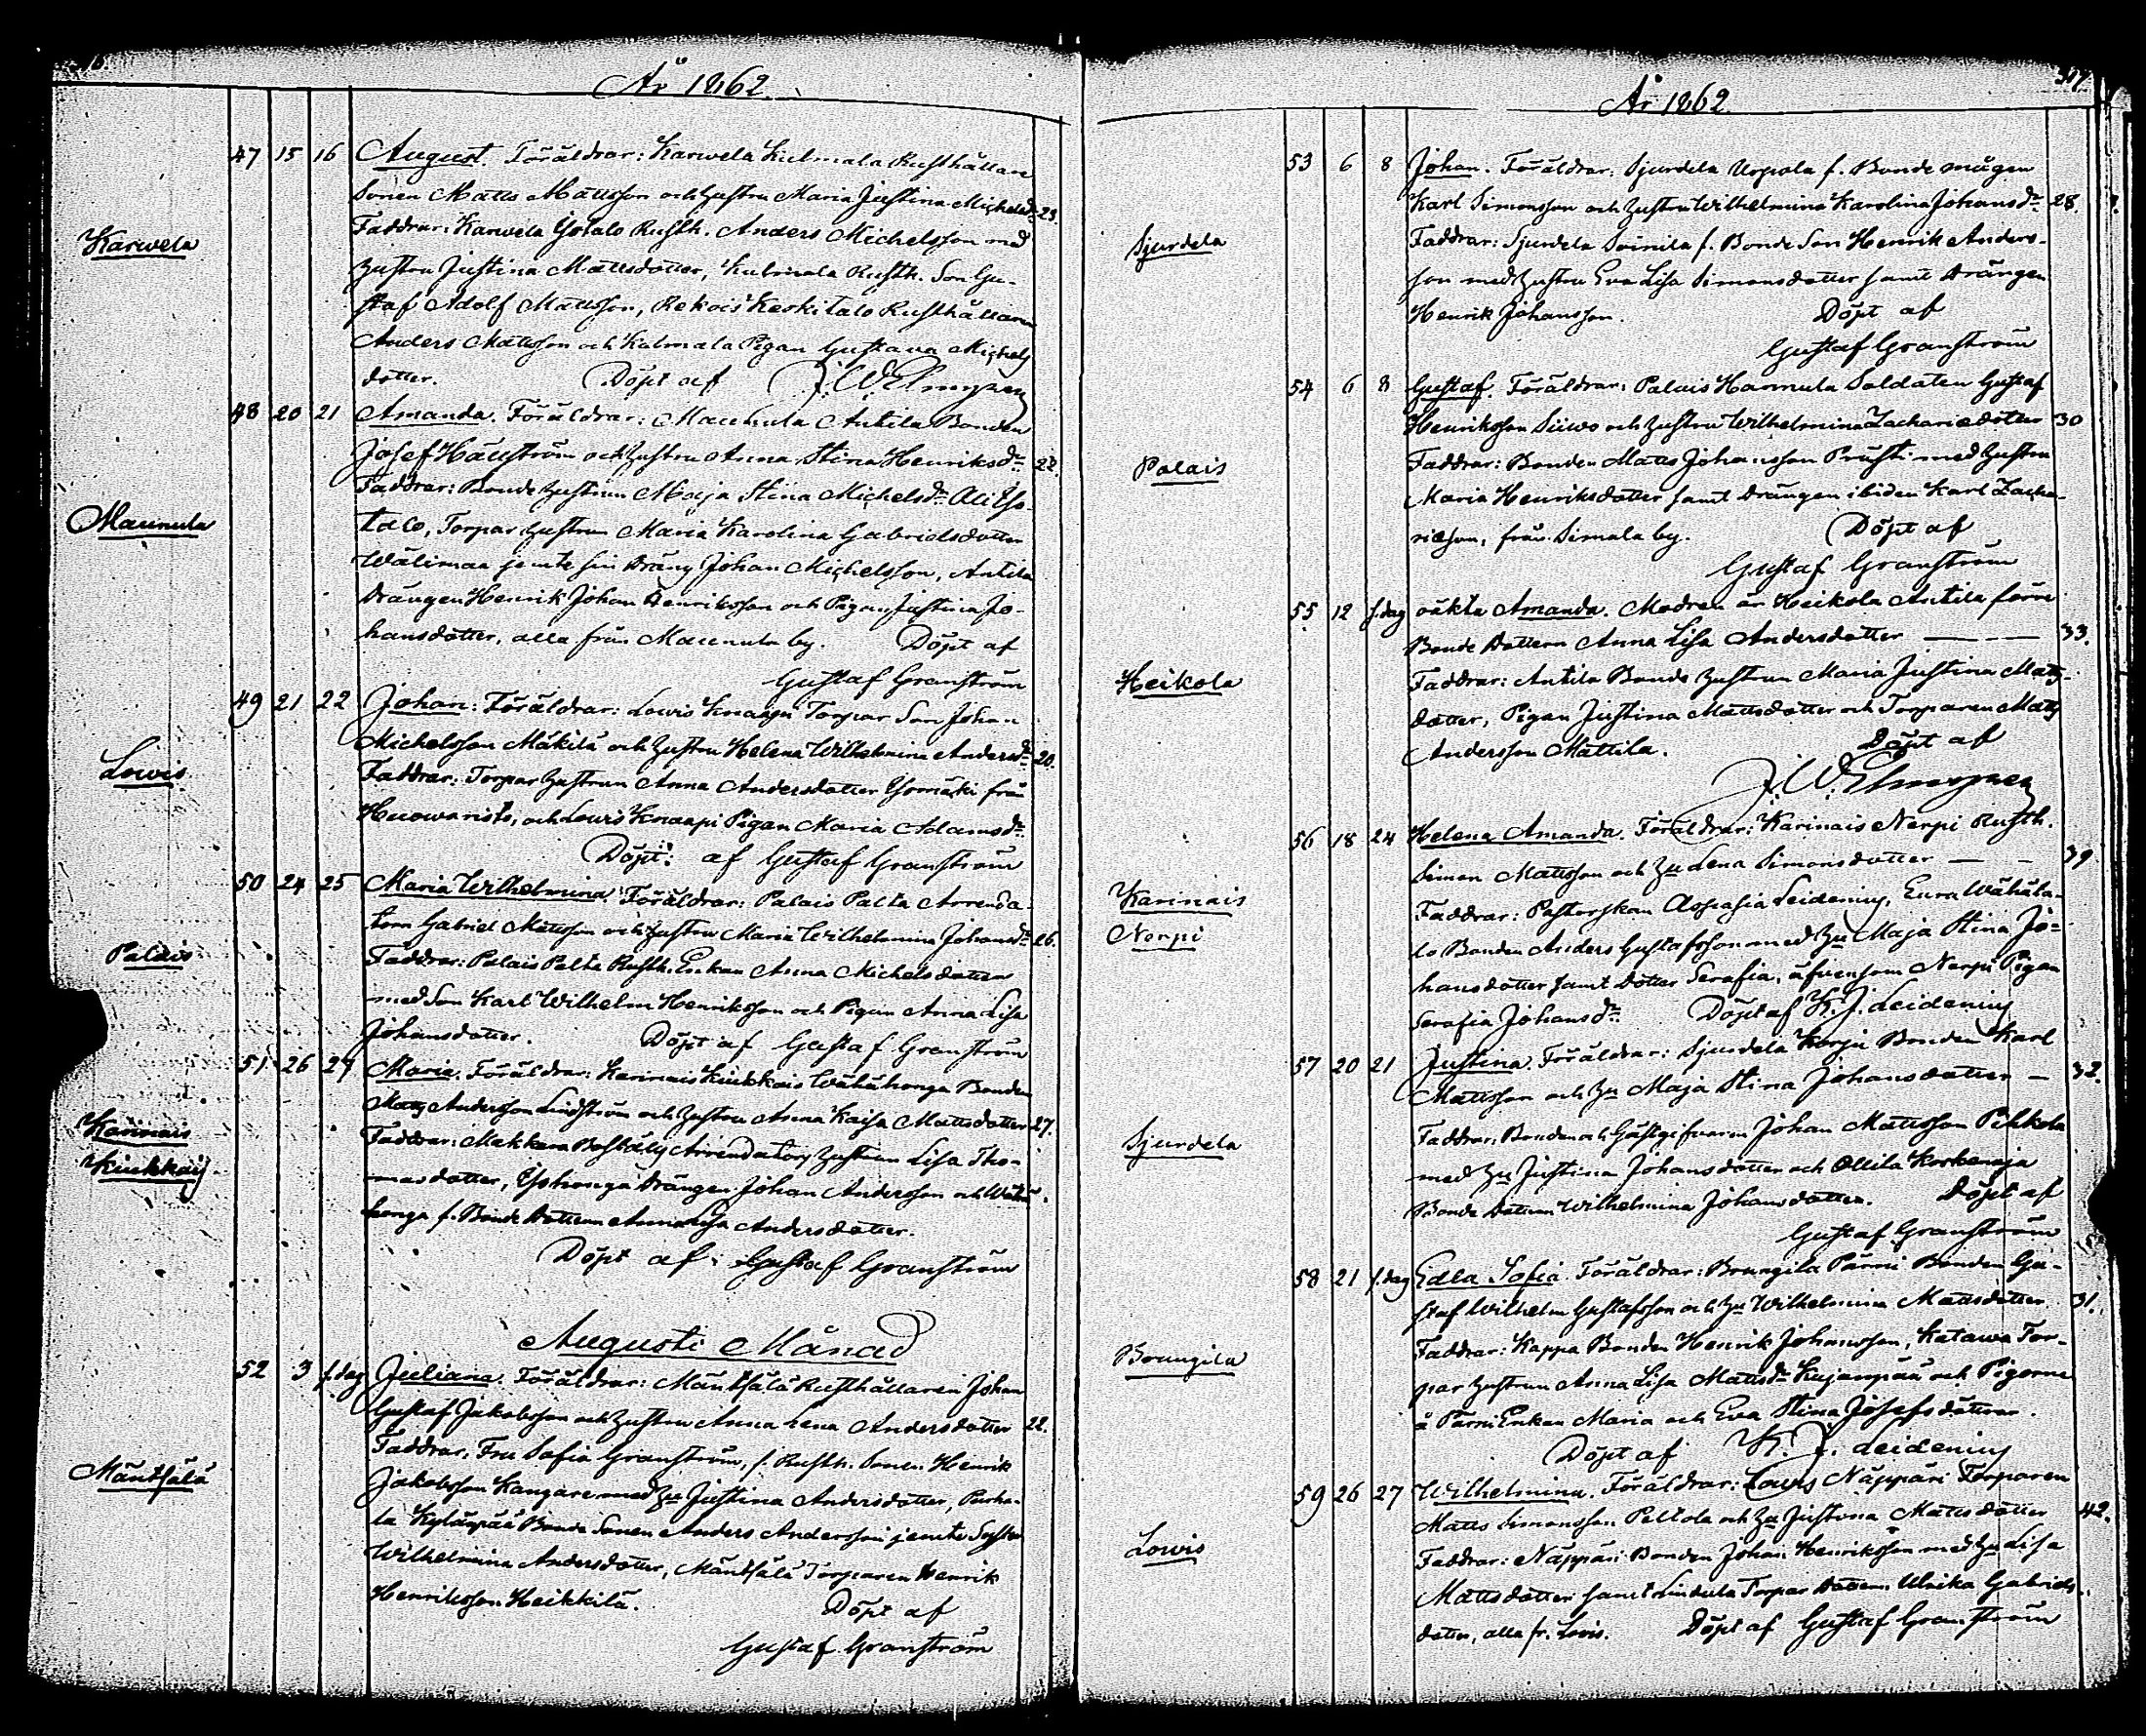 År 1862.
Karwela
47 15 16 August. Föräldrar: Karwela Kulmala Rusthållare
Sonen Matts Mattsson och hustru Maria Justina Michelsdr 23.
Faddrar: Karwela Yotalo Rusth. Anders Michelsson med
hustru Justina Mattsdotter, Kulmala Rusth. Son Gu-
staf Adolf Mattsson, Rekois Keskitalo Rusthållaren
Anders Mattsson och Kulmala Pigan Gustava Michels
dotter. Döpt af
Maunula
48 20 21 Amanda. Föräldrar: Maunula Antila Bonden
Josef Häuström och hustru Anna Stina Henriksdr 22.
Faddrar: Bonde hustrun Maja Stina Michelsdr Alitso-
talo, Torpar hustrun Maria Karolina Gabrielsdotter
Wälimaa jemte sin Dräng Johan Michelsson, Antila
Drängen Henrik Johan Henriksson och Pigan Justina Jo-
hansdotter, alla från Maunula by. Döpt af
Gustaf Granström
Lowis
49 21 22 Johan: Föräldrar: Lowis Knaapi Torpar Son Johan
Michelsson Mäkilä och hustru Helena Wilhelmina Andersdr 20.
Faddrar: Torpar hustrun Anna Andersdotter Isomäki från
Huowaristo, och Lowis Knaapi Pigan Maria Adamsdr
Döpt: af Gustaf Granström
Palais
50 24 25 Maria Wilhelmina. Föräldrar: Palais Palta Arrenda-
torn Gabriel Mattsson och hustru Maria Wilhelmina Johansdr 26.
Faddrar: Palais Palta Rusth. Enkan Anna Michelsdotter
med Son Karl Wilhelm Henriksson och Pigan Anna Lisa
Johansdotter. Döpt af Gustaf Granström
Karinais
Kiukkais
51 26 27 Maria. Föräldrar: Karinais Kiukkais Wähähonga Bonden
Matts Andersson Lindström och hustru Anna Kaisa Mattsdotter 27.
Faddrar: Makkara Boställs Arrendators hustrun Lisa Tho-
masdotter, Isohonga Drängen Johan Andersson och Wähä-
honga f. Bonde Dottern Anna Lisa Andersdotter.
Döpt af Gustaf Granström
Augusti Månad
Mäntsälä
52 3 s. dag Juliana. Föräldrar: Mäntsälä Rusthållaren Johan
Gustaf Jakobsson och hustru Anna Lena Andersdotter 22.
Faddrar, Fru Sofia Granström, f. Rusth. Sonen Henrik
Jakobsson Kangare med hu Justina Andersdotter, Purha-
la Kylänpää Bonde Sonen Anders Andersson jemte Syster
Wilhelmina Andersdotter, Mäntsälä Torparen Henrik
Henriksson Heikkilä. Döpt af
Gustaf Granström
År 1862.
Sjurdela
53 6 8 Johan. Föräldrar: Sjurdela Uopola f. Bonde mågen
Karl Simonsson och hustru Wilhelmina Karolina Johansdr 28.
Faddrar: Sjurdela Soinila f. Bonde Son Henrik Anders-
son med hustru Eva Lisa Simonsdotter samt Drängen
Henrik Johansson. Döpt af
Gustaf Granström
Palais
54 6 8 Gustaf. Föräldrar: Palais Hannula Soldaten Gustaf
Henriksson Siiwo och hustru Wilhelmina Zachariedotter 30
Faddrar: Bonden Matts Johansson Prusti med hustru
Maria Henriksdotter samt Drängen ibiden Karl Zacha-
rieson, från Simala by. Döpt af
Gustaf Granström
Heikola
55 12 s. dag oäkta Amanda. Modren är Heikola Antila förre
Bonde Dottern Anna Lisa Andersdotter 33.
Faddrar: Antila Bonde hustrun Maria Justina Matts-
dotter, Pigan Justina Mattsdotter och Torparen Matts
Andersson Mattila. Döpt af
Karinais
Nerpi
56 18 24 Helena Amanda. Föräldrar: Karinais Nerpi Rusth.
Simon Mattsson och hu Lena Simonsdotter 39
Faddrar: Pastorskan Aspasia Leidenius, Eura Wähäta-
lo Bonden Anders Gustafsson med hu Maja Stina Jo-
hansdotter samt Dotter Serafia, äfvensom Nerpi Pigan
Serafia Johansdr. Döpt af K. J. Leidenius
Sjurdela
57 20 21 Justina. Föräldrar: Sjurdela Korpi Bonden Karl
Mattsson och hu Maja Stina Johansdotter 32.
Faddrar, Bonden och Gästgifvaren Johan Mattsson Pihkola
med hu Justina Johansdotter och Ollila Korkenoja
Bonde Dottern Wilhelmina Johansdotter. Döpt af
Gustaf Granström
Brungila
58 21 s. dag Edla Sofia. Föräldrar: Brungila Pärni Bonden Gu-
staf Wilhelm Gustafsson och hu Wilhelmina Mattsdotter 31.
Faddrar: Kappa Bonden Henrik Johansson, Katawa Tor-
par hustrun Anna Lisa Mattsdr Kujanpää och Pigorne
å Pärni Enkan Maria och Eva Stina Josefsdöttrar.
Döpt af K. J. Leidenius
Lowis
59 26 27 Wilhelmina. Föräldrar: Lowis Näppäri Torparen
Matts Simonsson Peltola och hu Justina Mattsdotter 42.
Faddrar: Näppäri Bonden Johan Henriksson med hu Lisa
Mattsdotter samt Lindula Torpar Dottern Ulrika Gabriels-
dotter, alla fr. Lowis. Döpt af Gustaf Granström